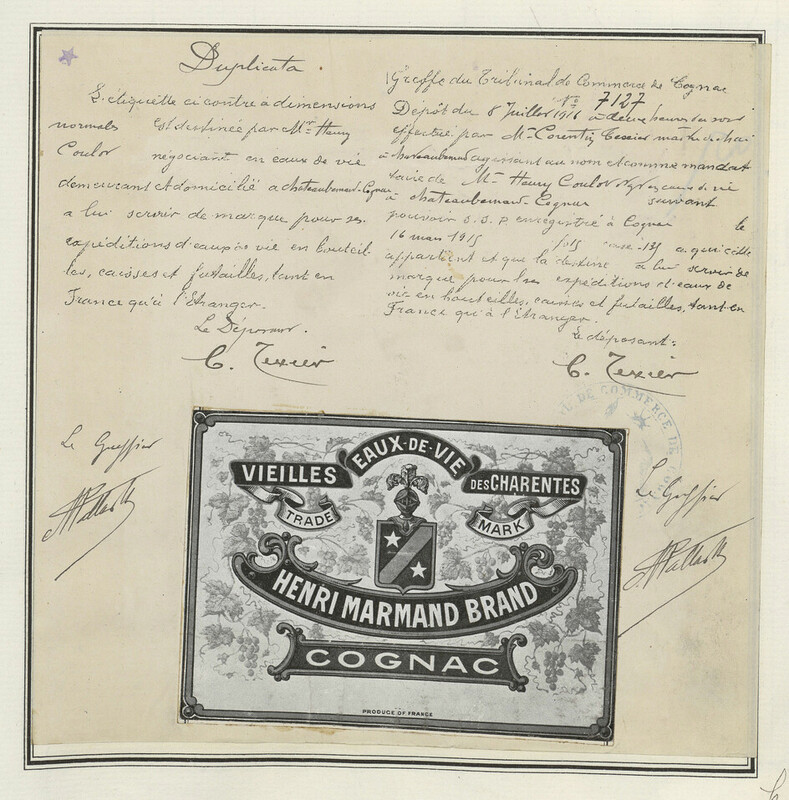 Duplicata.
L'étiquette ci contre à dimensions
normales est destinée par Mr Henry
Coulor négociant en eaux de vie
demeurant et domicilié à Chateaubernard-Cognac
a lui servir de marque pour ses
expéditions d'eaux de vie en bouteil-
les, caisses et futailles, tant en
France qu'à l'Etranger.
Le Déposant.
C. Texier
Le Greffier
Greffe du Tribunal de Commerce de Cognac
No 7127
Dépôt du 8 Juillet 1916 à deux heures du soir
effectué par Mr Corentin Texier maître de chai
à Chateaubernard agissant au nom et comme manda-
taire de Mr Henry Coulor Ngt en eaux de vie
à Chateaubernard-Cognac suivant
pouvoir S. S. P. enregistré à Cognac le
16 mars 1915 case 135 a qui elle
appartient et que la destine à lui servir de
marque pour les expéditions d'eaux de
vie en bouteilles, caisses et futailles, tant en
France qu'à l'Etranger.
Le déposant:
C. Texier
DE COMMERCE DE
Le Greffier
VIEILLES EAUX-DE-VIE DES CHARENTES
TRADE MARK
HENRI MARMAND BRAND
COGNAC
PRODUCE OF FRANCE